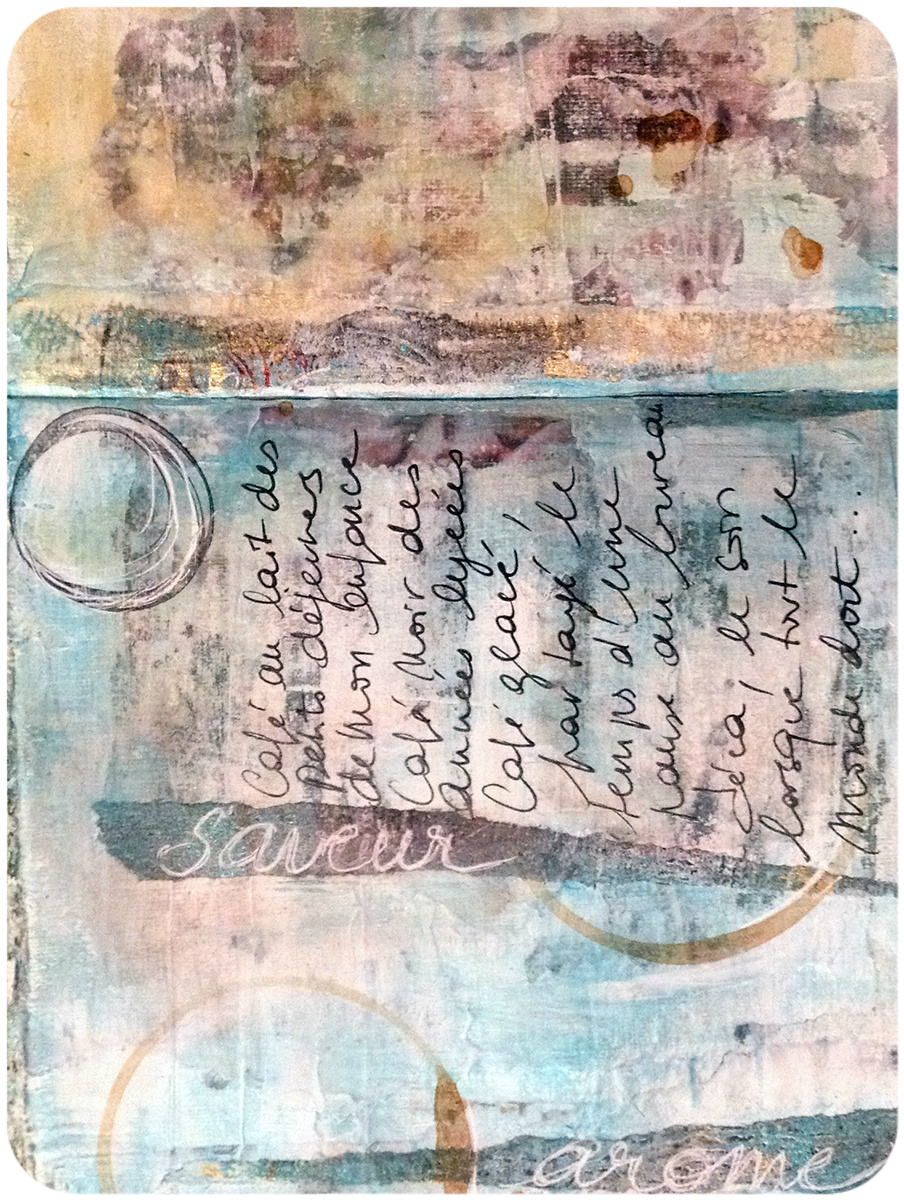 Café au lait des
petits déjeuners
de mon enfance
Café noir des
années lycées
Café glacé,
partagé le
temps d'une
pause au bureau
Déca, le soir
lorsque tout le
monde dort...
saveur
arome